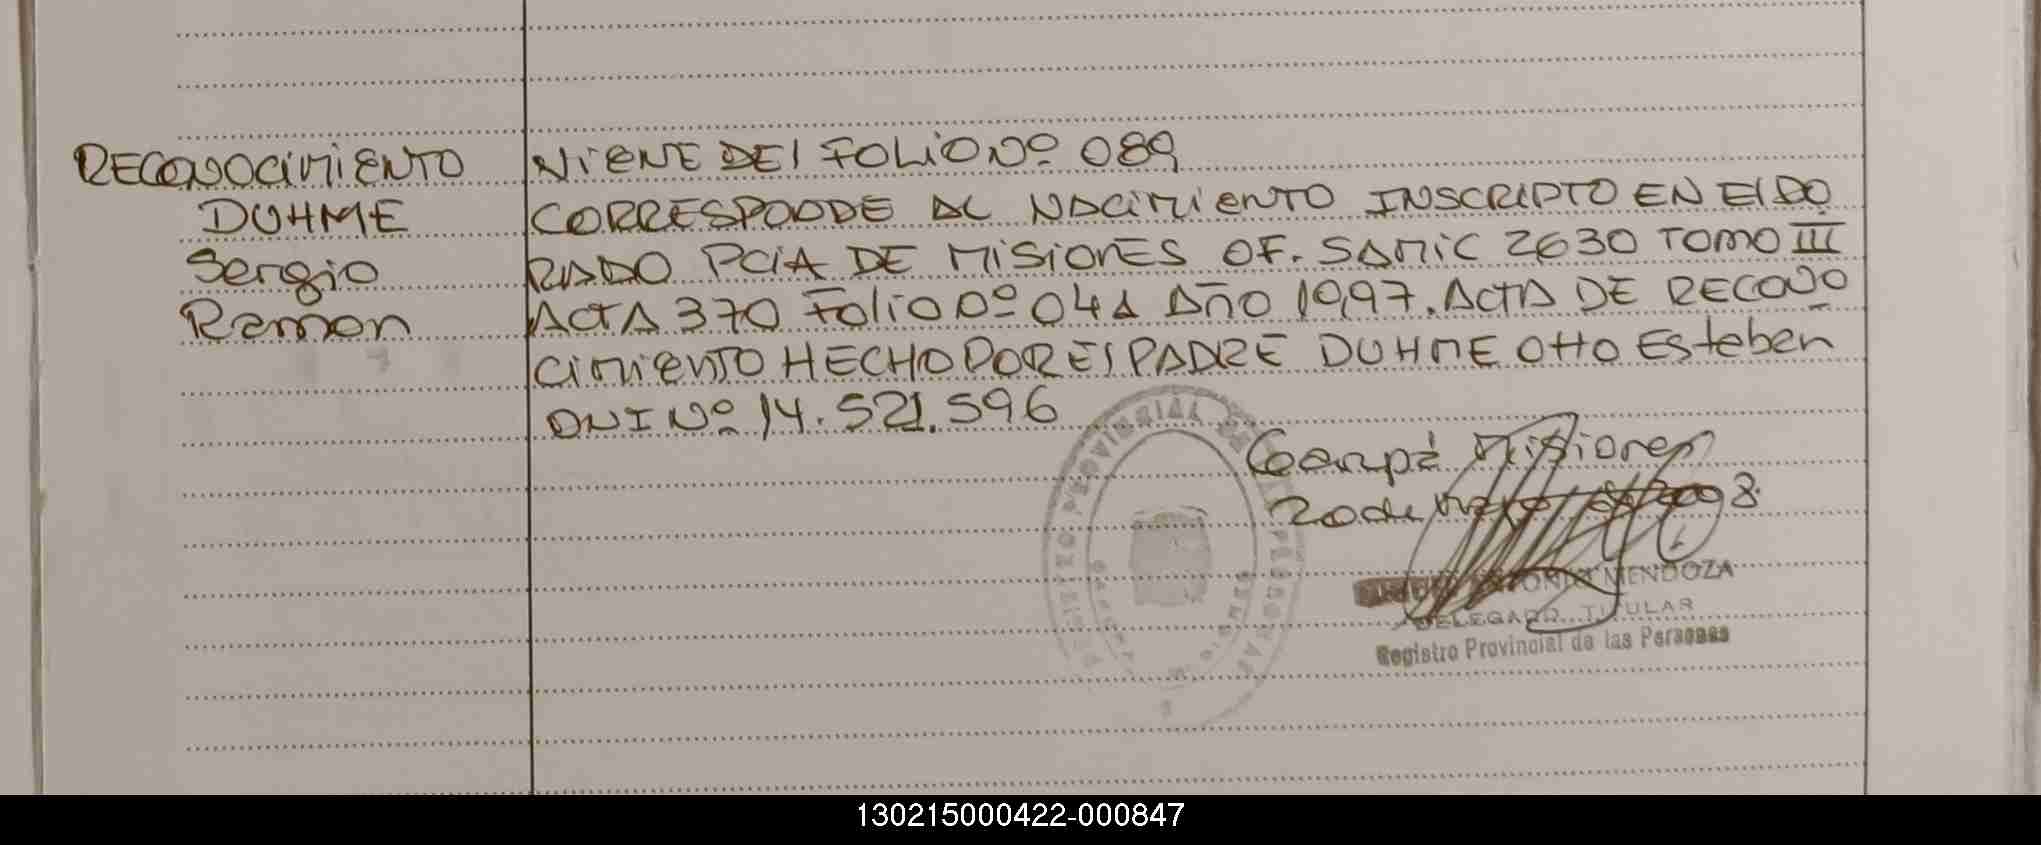 RECONOCIMIENTO
DUHME
Sergio
Ramon
VIENE DEl FOLIO Nº 089
CORRESPONDE AL NACIMIENTO INSCRIPTO EN ElDO
RADO PCIA DE MISIONES OF. SAMIC 2630 TOMO III
ACTA 370 Folio Nº 04 AÑO 1997. ACTA DE RECONO
CIMIENTO HECHO POR El PADRE DUHME Otto Esteban
DNI Nº 14.521.596
Misiones
20 de
REGISTRO PROVINCIAL DE LAS PERSONAS
MENDOZA
DELEGADO TITULAR
Registro Provincial de las Personas
130215000422-000847